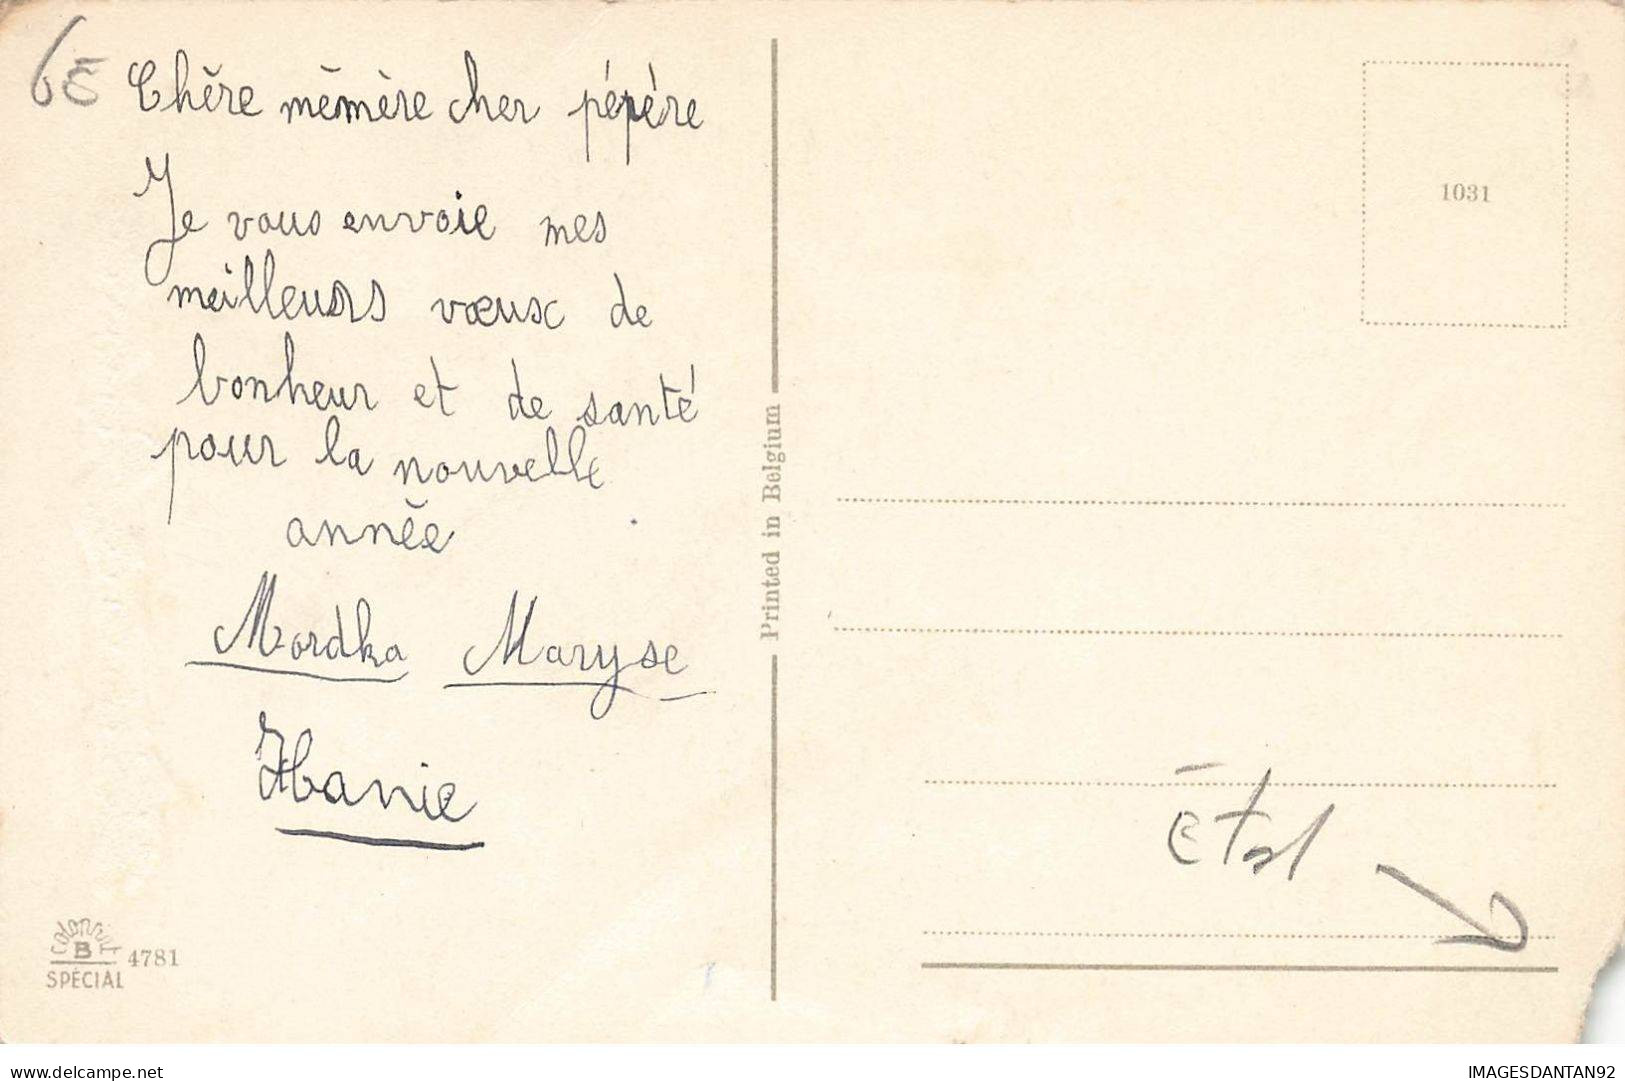 6€
Chère mémère cher pépère
Je vous envoie mes
meilleurs vœux de
bonheur et de santé
pour la nouvelle
année
Mordka Maryse
Hanie
colorprint
B
SPÉCIAL
4781
Printed in Belgium
1031
État
delcampe.net
IMAGESDANTAN92